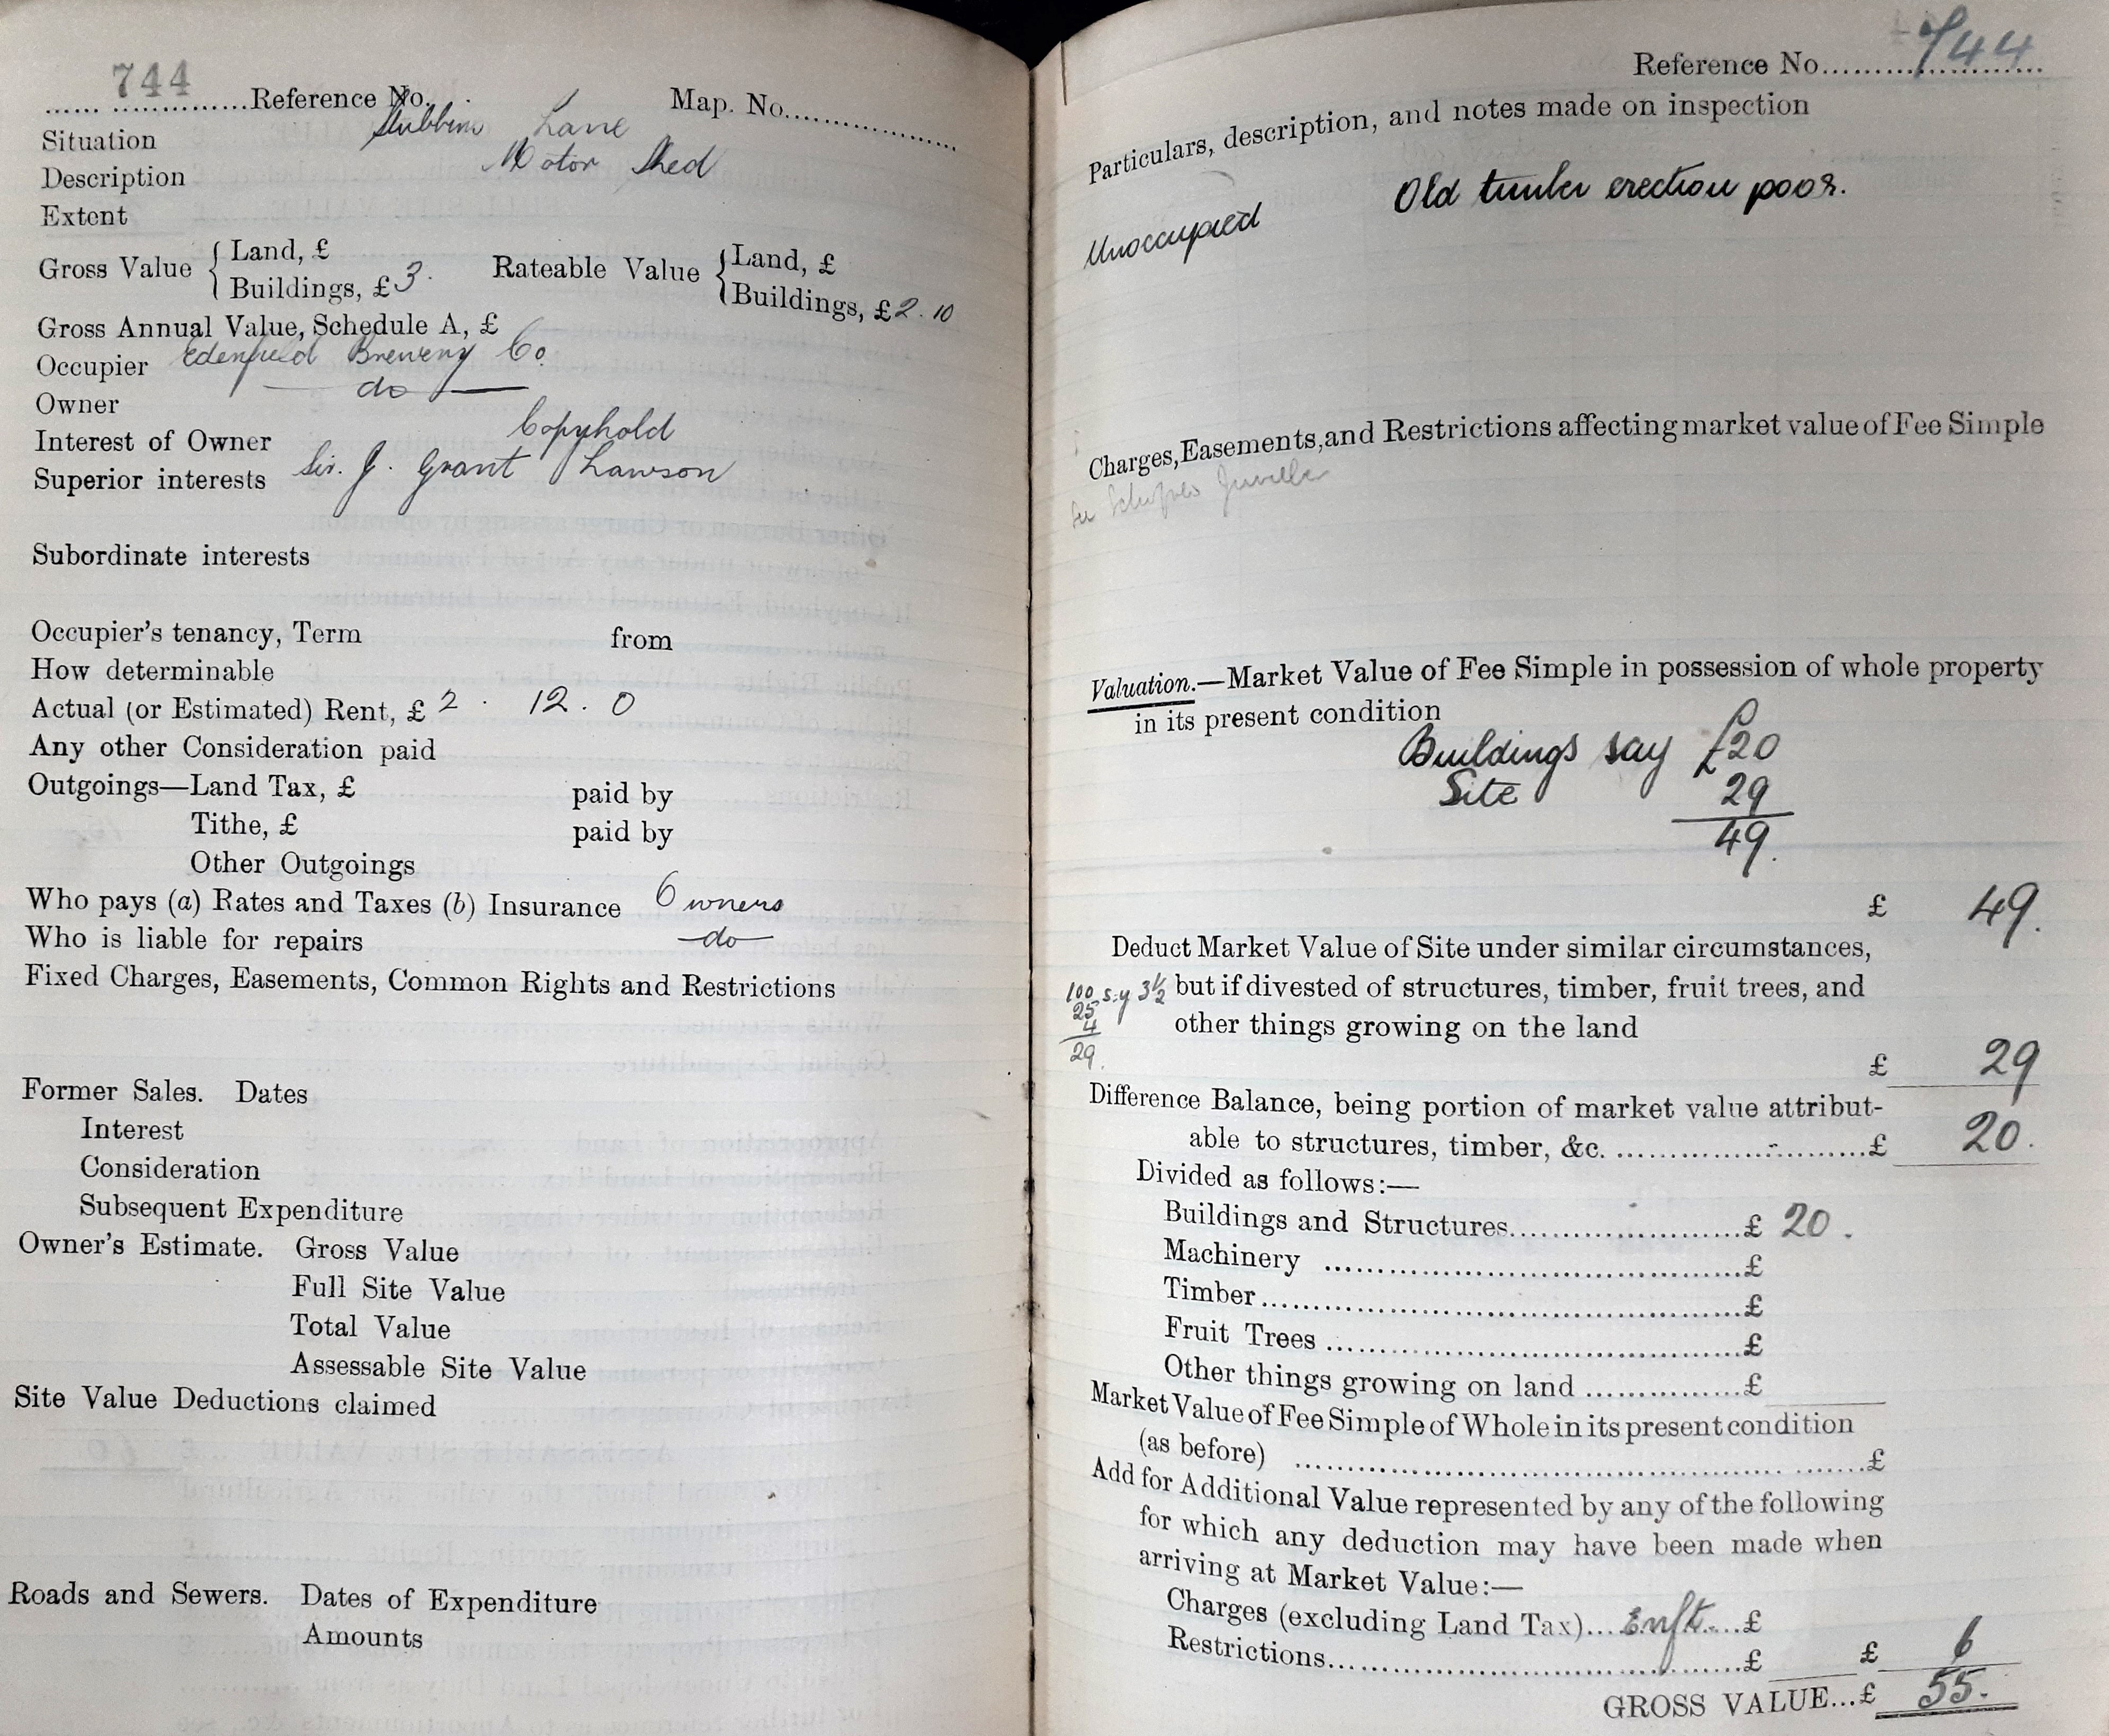 744
Reference No. Map. No.
Situation Stubbins Lane
Description Motor Shed
Extent
Gross Value { Land, £
Buildings, £ 3. Rateable Value { Land, £
Buildings, £ 2. 10
Gross Annual Value, Schedule A, £
Occupier Edenfield Brewery Co.
Owner do
Interest of Owner Copyhold
Superior interests Sir. J. Grant Lawson
Subordinate interests
Occupier's tenancy, Term from
How determinable
Actual (or Estimated) Rent, £ 2 . 12 . 0
Any other Consideration paid
Outgoings—Land Tax, £ paid by
Tithe, £ paid by
Other Outgoings
Who pays (a) Rates and Taxes (b) Insurance Owners
Who is liable for repairs do
Fixed Charges, Easements, Common Rights and Restrictions
Former Sales. Dates
Interest
Consideration
Subsequent Expenditure
Owner's Estimate. Gross Value
Full Site Value
Total Value
Assessable Site Value
Site Value Deductions claimed
Roads and Sewers. Dates of Expenditure
Amounts
Reference No. 744
Particulars, description, and notes made on inspection
Old timber erection poor.
Unoccupied
Charges, Easements, and Restrictions affecting market value of Fee Simple
Valuation.—Market Value of Fee Simple in possession of whole property
in its present condition
Buildings say £20
Site 29
49.
£ 49.
Deduct Market Value of Site under similar circumstances,
100 s.y 3½ but if divested of structures, timber, fruit trees, and
25
4 other things growing on the land
29.
£ 29
Difference Balance, being portion of market value attribut-
able to structures, timber, &c. £ 20.
Divided as follows:—
Buildings and Structures £ 20.
Machinery £
Timber £
Fruit Trees £
Other things growing on land £
Market Value of Fee Simple of Whole in its present condition
(as before) £
Add for Additional Value represented by any of the following
for which any deduction may have been made when
arriving at Market Value:—
Charges (excluding Land Tax) Enft. £
Restrictions £ £ 6
GROSS VALUE...£ 55.